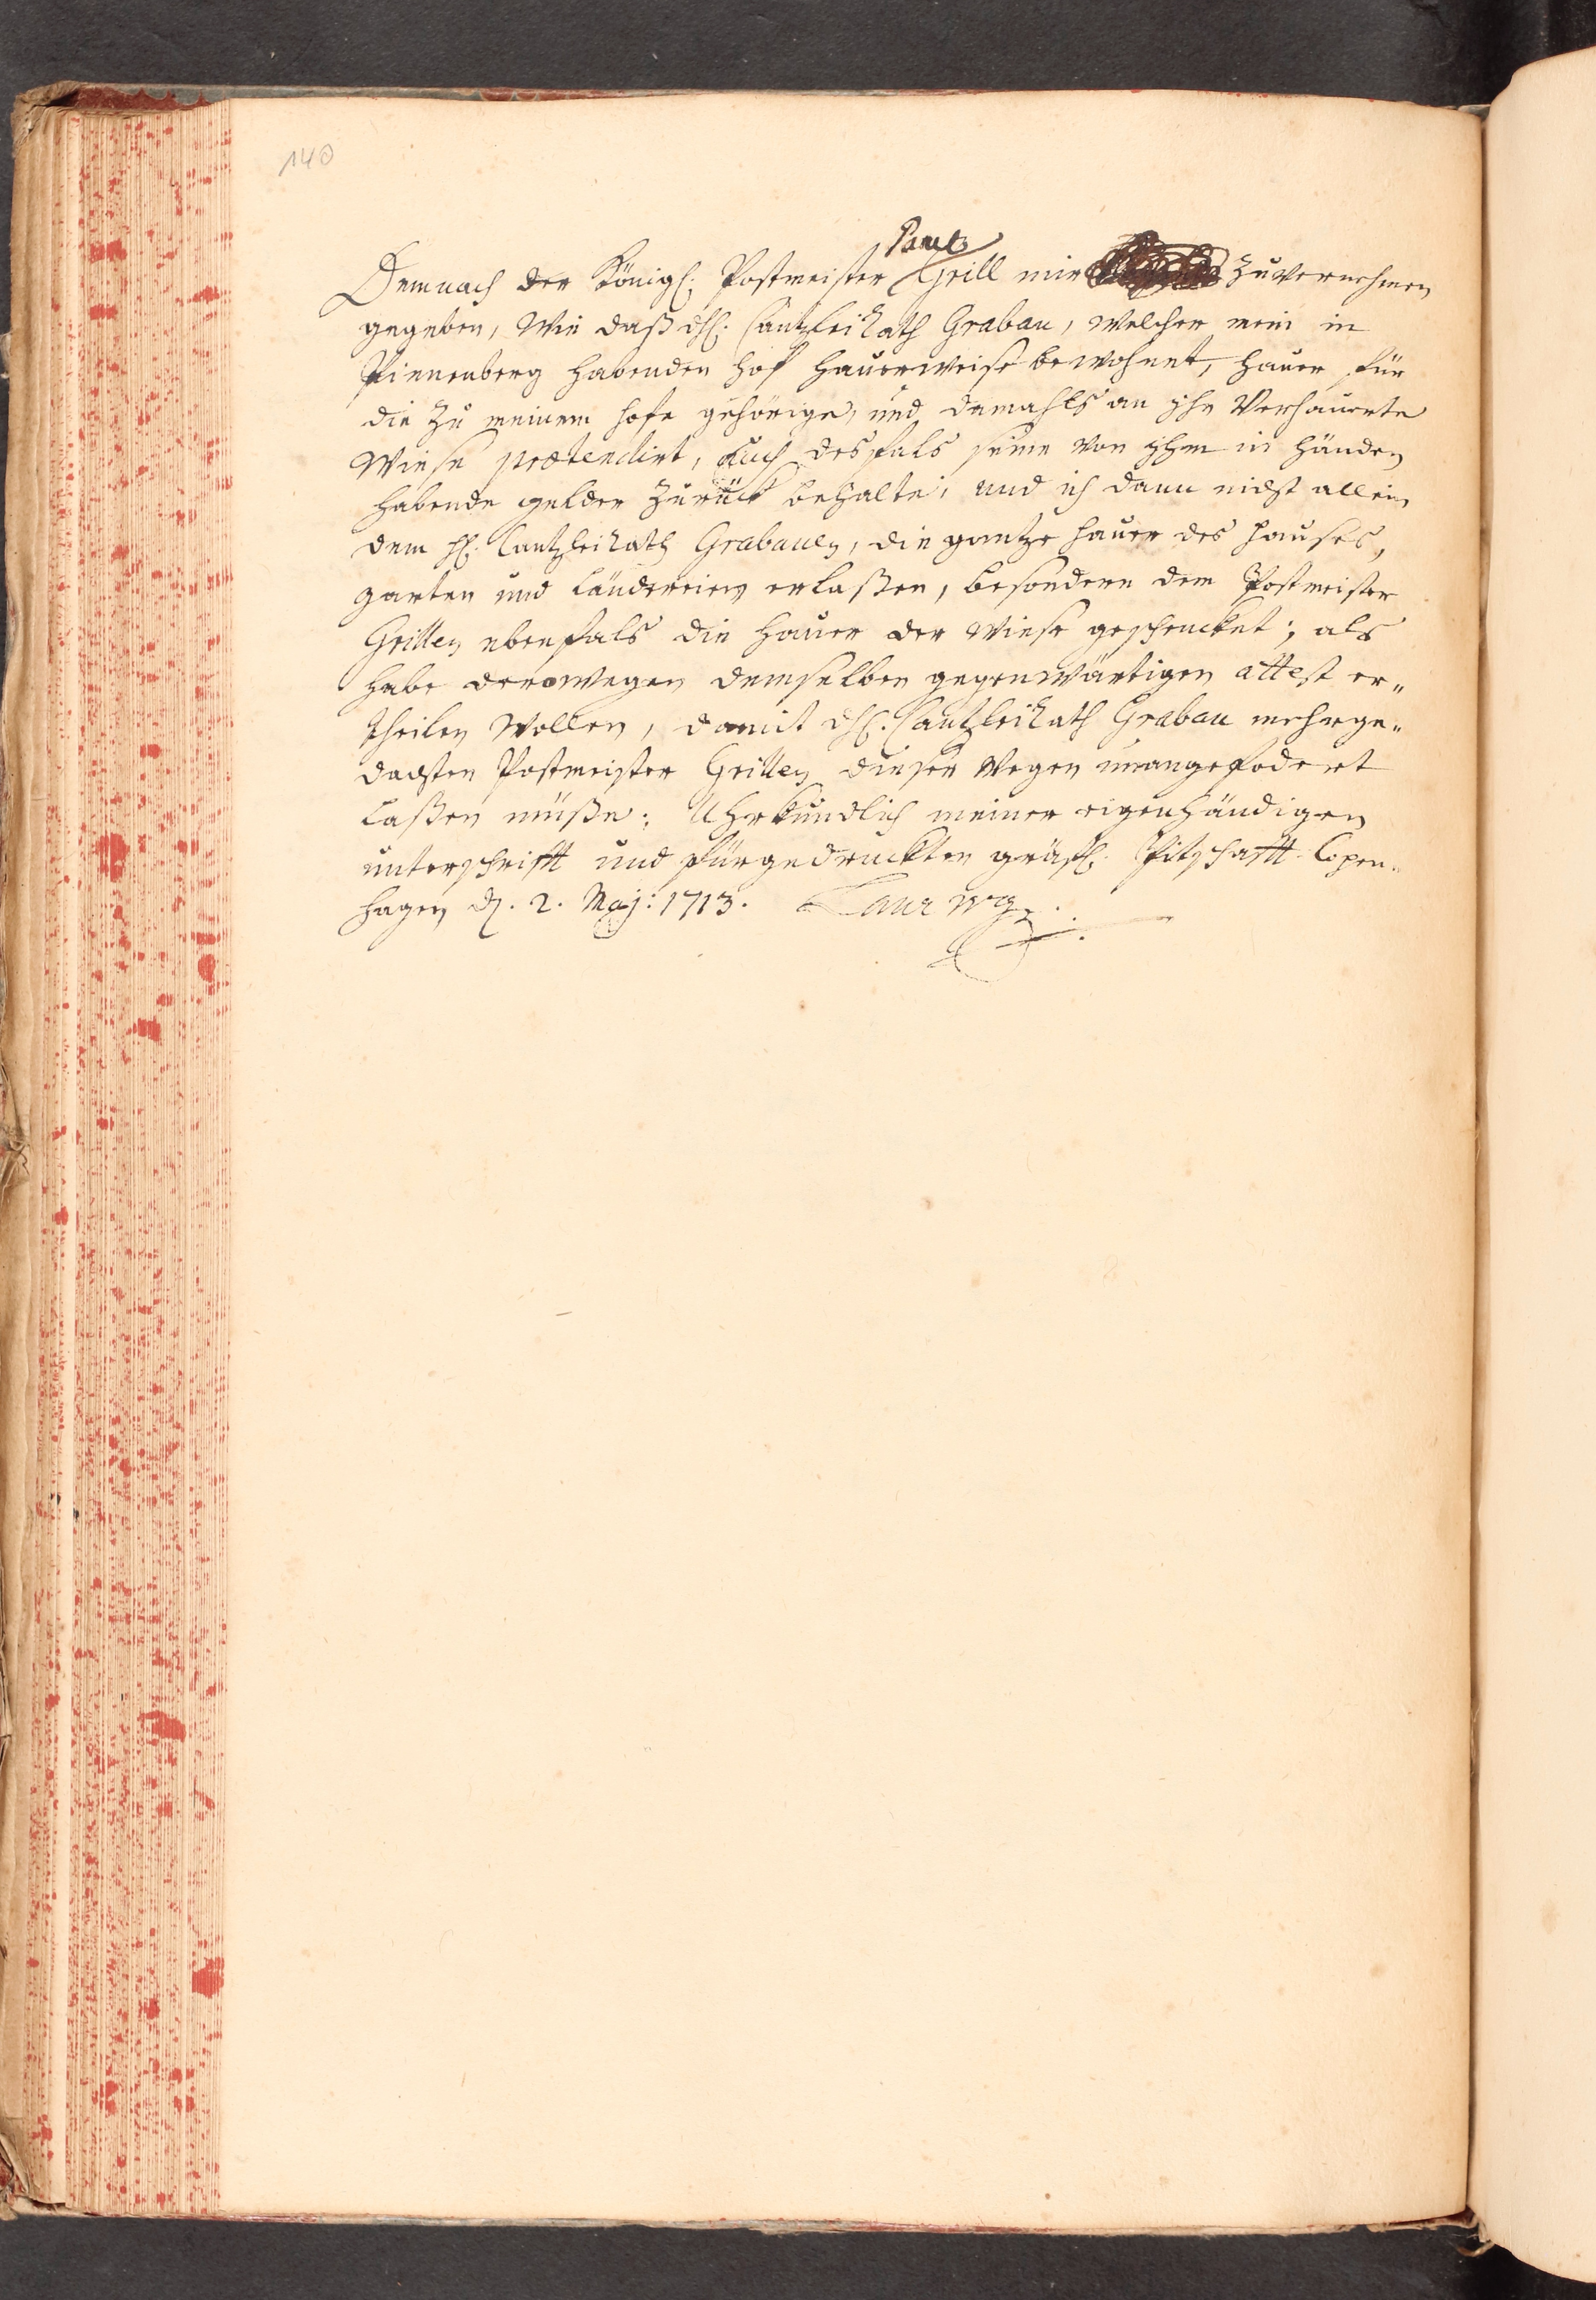 140
Paul
Demnach der Königl. Postmeister Grill mir zuvernehmen
gegeben, Wie daß dH. CantzleiRath Grabau, welcher mein in
Pinnenberg habenden hof hauerweise bewohnet, hauer für
die zu meinem hofe gehörige, und damahls an ihn Verhauerte
Wiese prætendirt, auch desfals seine von ihm in händen
habende gelder zurück behalte, und ich dann nicht allein
dem H. CantzleiRath Grabauen, die gantze hauer des hauses,
garten und Ländereien erlaßen, besondern dem Postmeister
Grillen ebenfals die hauer der Wiese geschencket; als
habe derowegen demselben gegenwärtigen attest er„
theilen Wollen, damit dH. CantzleiRath Grabau mehrge„
dachten Postmeister Grillen dieser Wegen unangefodert
Laßen müße; Uhrkundlich meiner eigenhändigen
unterschrifft und fürgedruckten gräfl. Pitschafft. Copen„
hagen d. 2. Maj: 1713. Laurwg